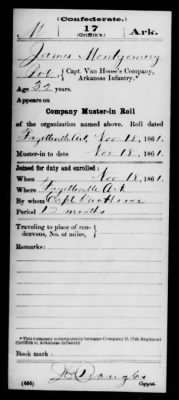 (Confederate.)
M 17 Ark.
(Griffith's.)
James Montgomery
Pvt, Capt. Van Hoose's Company,
Arkansas Infantry.*
Age 32 years.
Appears on
Company Muster-in Roll
of the organization named above. Roll dated
Fayetteville Ark, Nov 18, 1861.
Muster-in to date Nov 18, 1861.
Joined for duty and enrolled:
When Nov 18, 1861.
Where Fayetteville Ark
By whom Capt Van Hoose
Period 12 months
Traveling to place of ren-
dezvous, No. of miles,
Remarks:
*This company subsequently became Company
(Griffith's) Arkansas Infantry.
Book mark:
(655) Copyist.